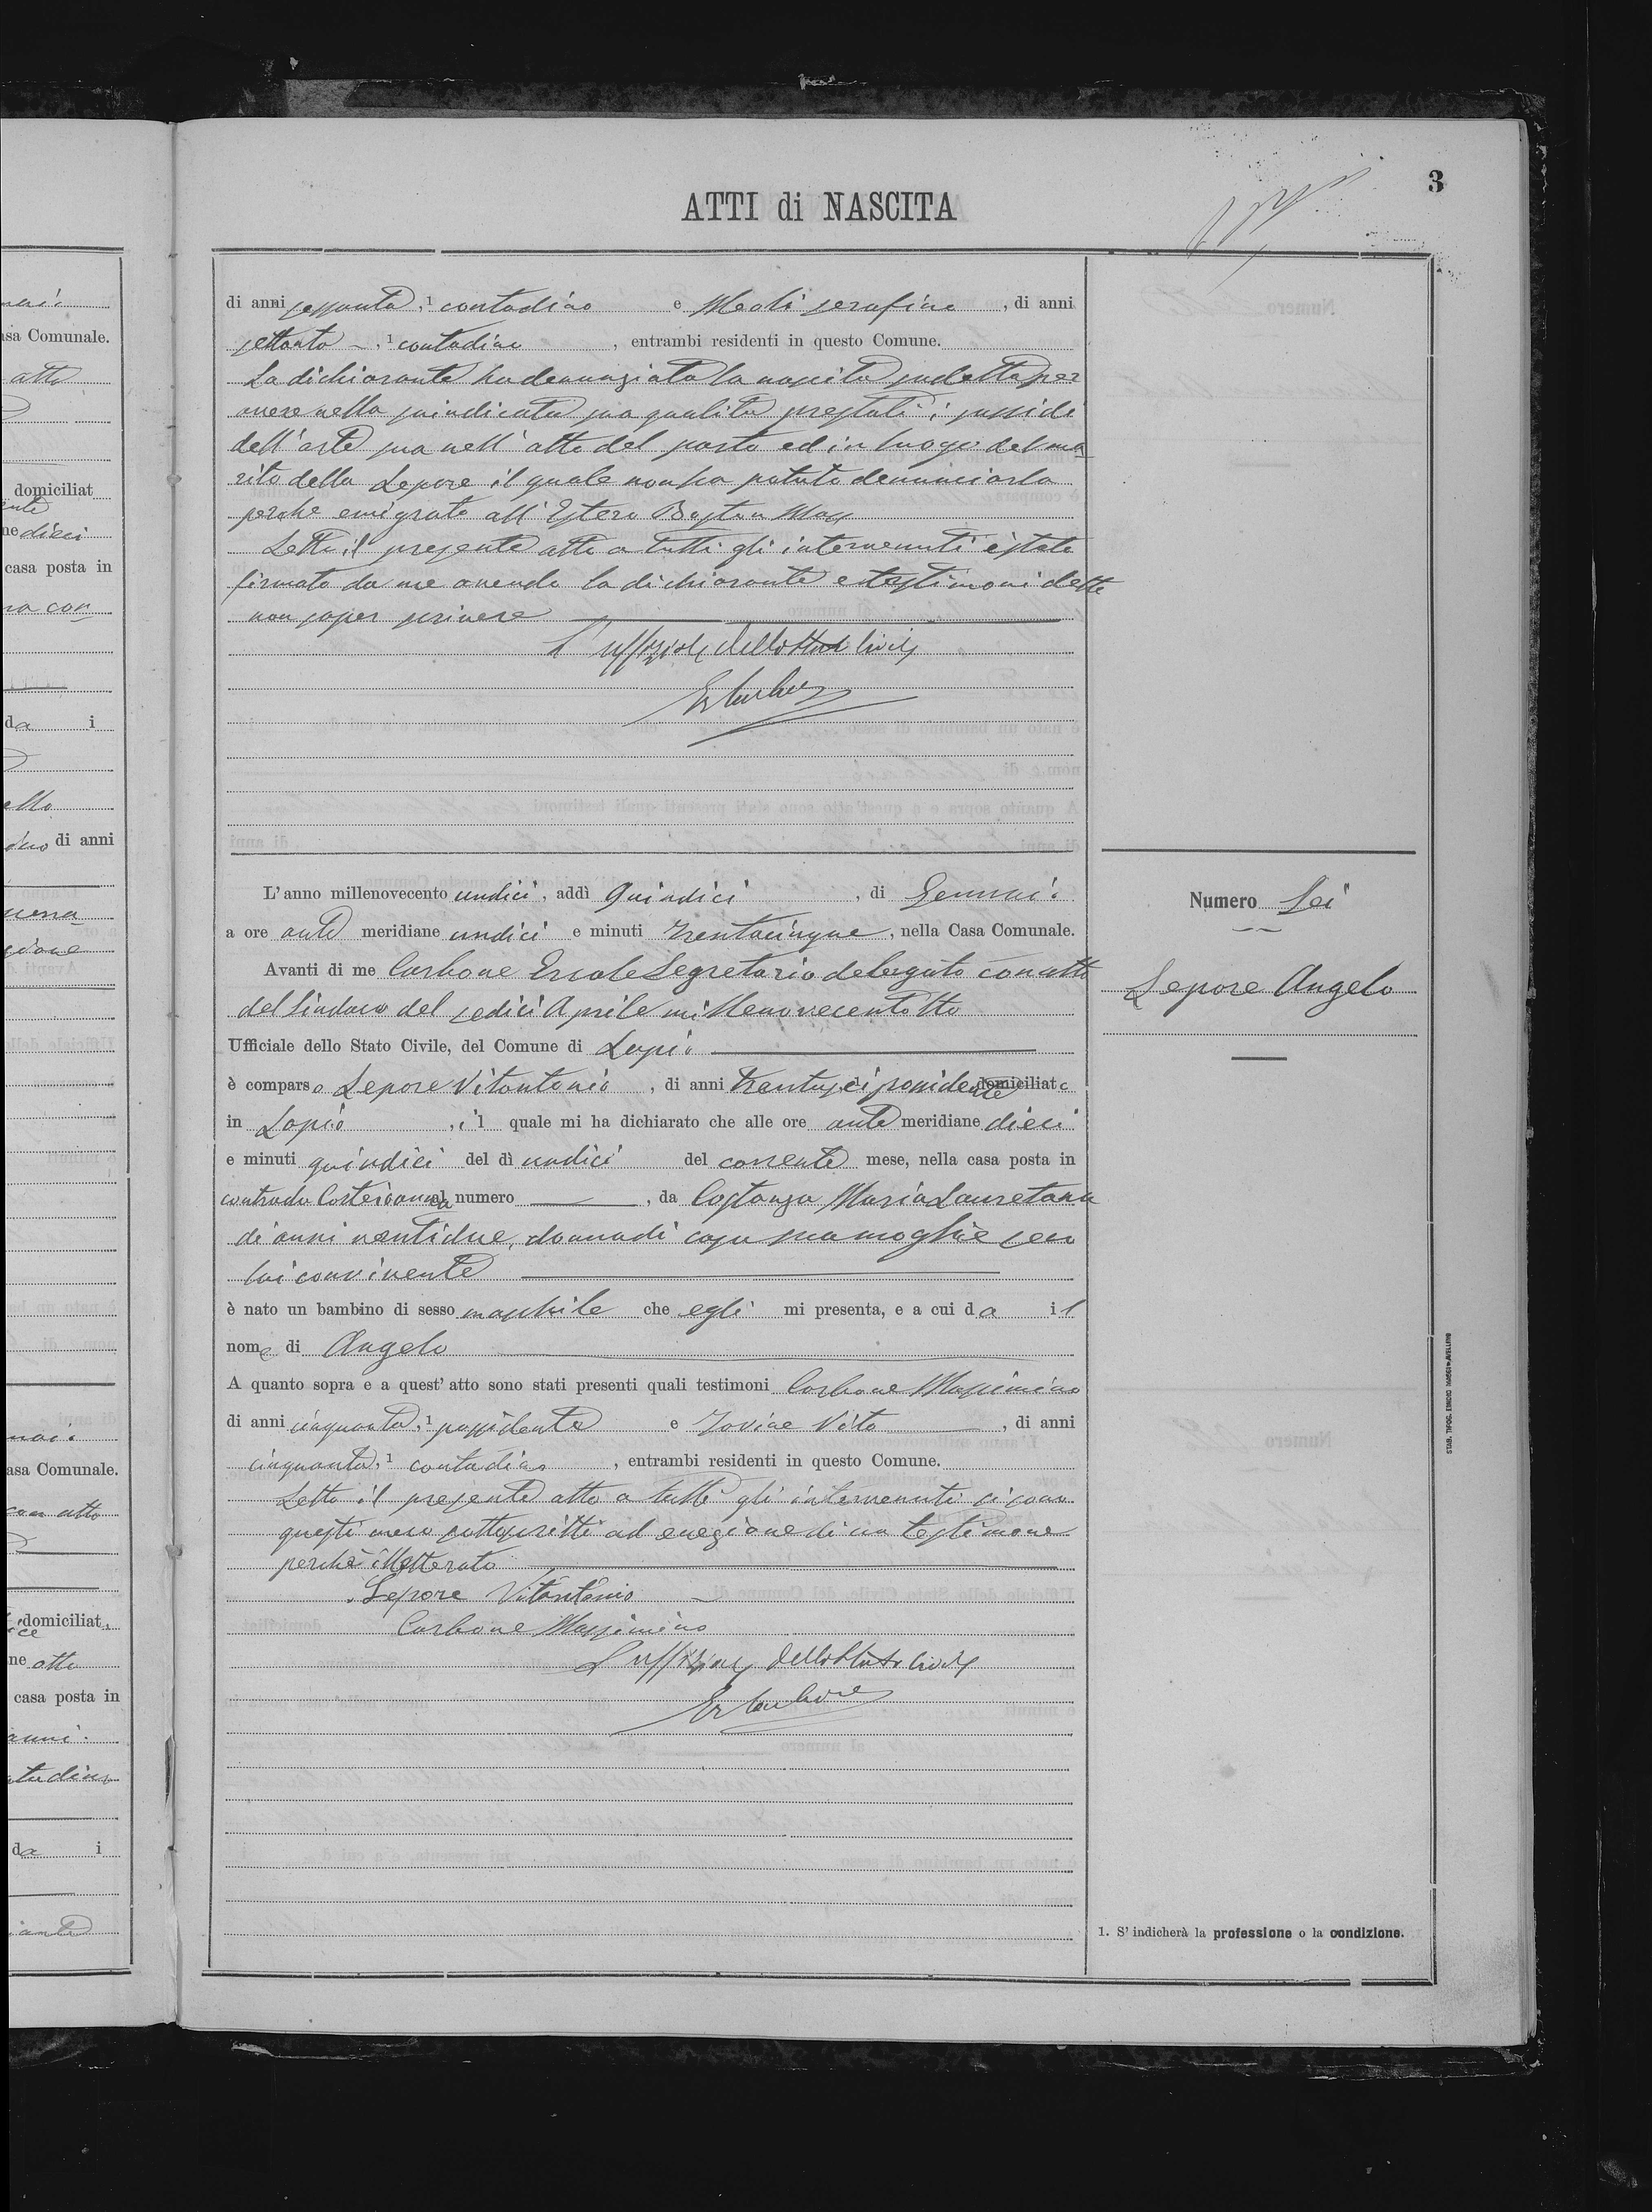 3
ATTI di NASCITA
di anni sessanta, 1 contadino e Meoli Serafino, di anni
settanta, 1 contadino, entrambi residenti in questo Comune.
La dichiarante ha denunziata la nascita sudetta per
avere nella suindicata sua qualità prestati i sussidi
dell'arte sua nell'atto del parto ed in luogo del ma
rito della Lepore il quale non ha potuto denunciarla
perché emigrato all'Estero Boston Mass
Letto il presente atto a tutti gli intervenuti è stato
firmato da me avendo la dichiarante e testimoni detto
non saper scrivere
L'uffiziale dello Stato Civile
Er Carbone
L'anno millenovecento undici, addì Quindici, di Gennaio
a ore ante meridiane undici e minuti trentacinque, nella Casa Comunale.
Avanti di me Carbone Ercole Segretario delegato con atto
del Sindaco del sedici Aprile millenovecentotto
Ufficiale dello Stato Civile, del Comune di Lapio
è comparso Lepore Vitantonio, di anni trentasei, 1 possidente domiciliato
in Lapio, il quale mi ha dichiarato che alle ore ante meridiane dieci
e minuti quindici del dì undici del corrente mese, nella casa posta in
contrada al numero, da Costanza Maria Lauretana
di anni ventidue, donna di casa sua moglie seco
lui convivente
è nato un bambino di sesso maschile che egli mi presenta, e a cui da il
nome di Angelo
A quanto sopra e a quest' atto sono stati presenti quali testimoni Carbone Massimino
di anni cinquanta, 1 possidente e Iovine Vito, di anni
cinquanta, 1 contadino, entrambi residenti in questo Comune.
Letto il presente atto a tutti gli intervenuti si sono
questi meco sottoscritti ad eccezione di un testimone
perché illetterato
Lepore Vitantonio
Carbone Massimino
L'uffiziale dello Stato Civile
Er Carbone
Numero Sei
Lepore Angelo
1. S' indicherà la professione o la condizione.